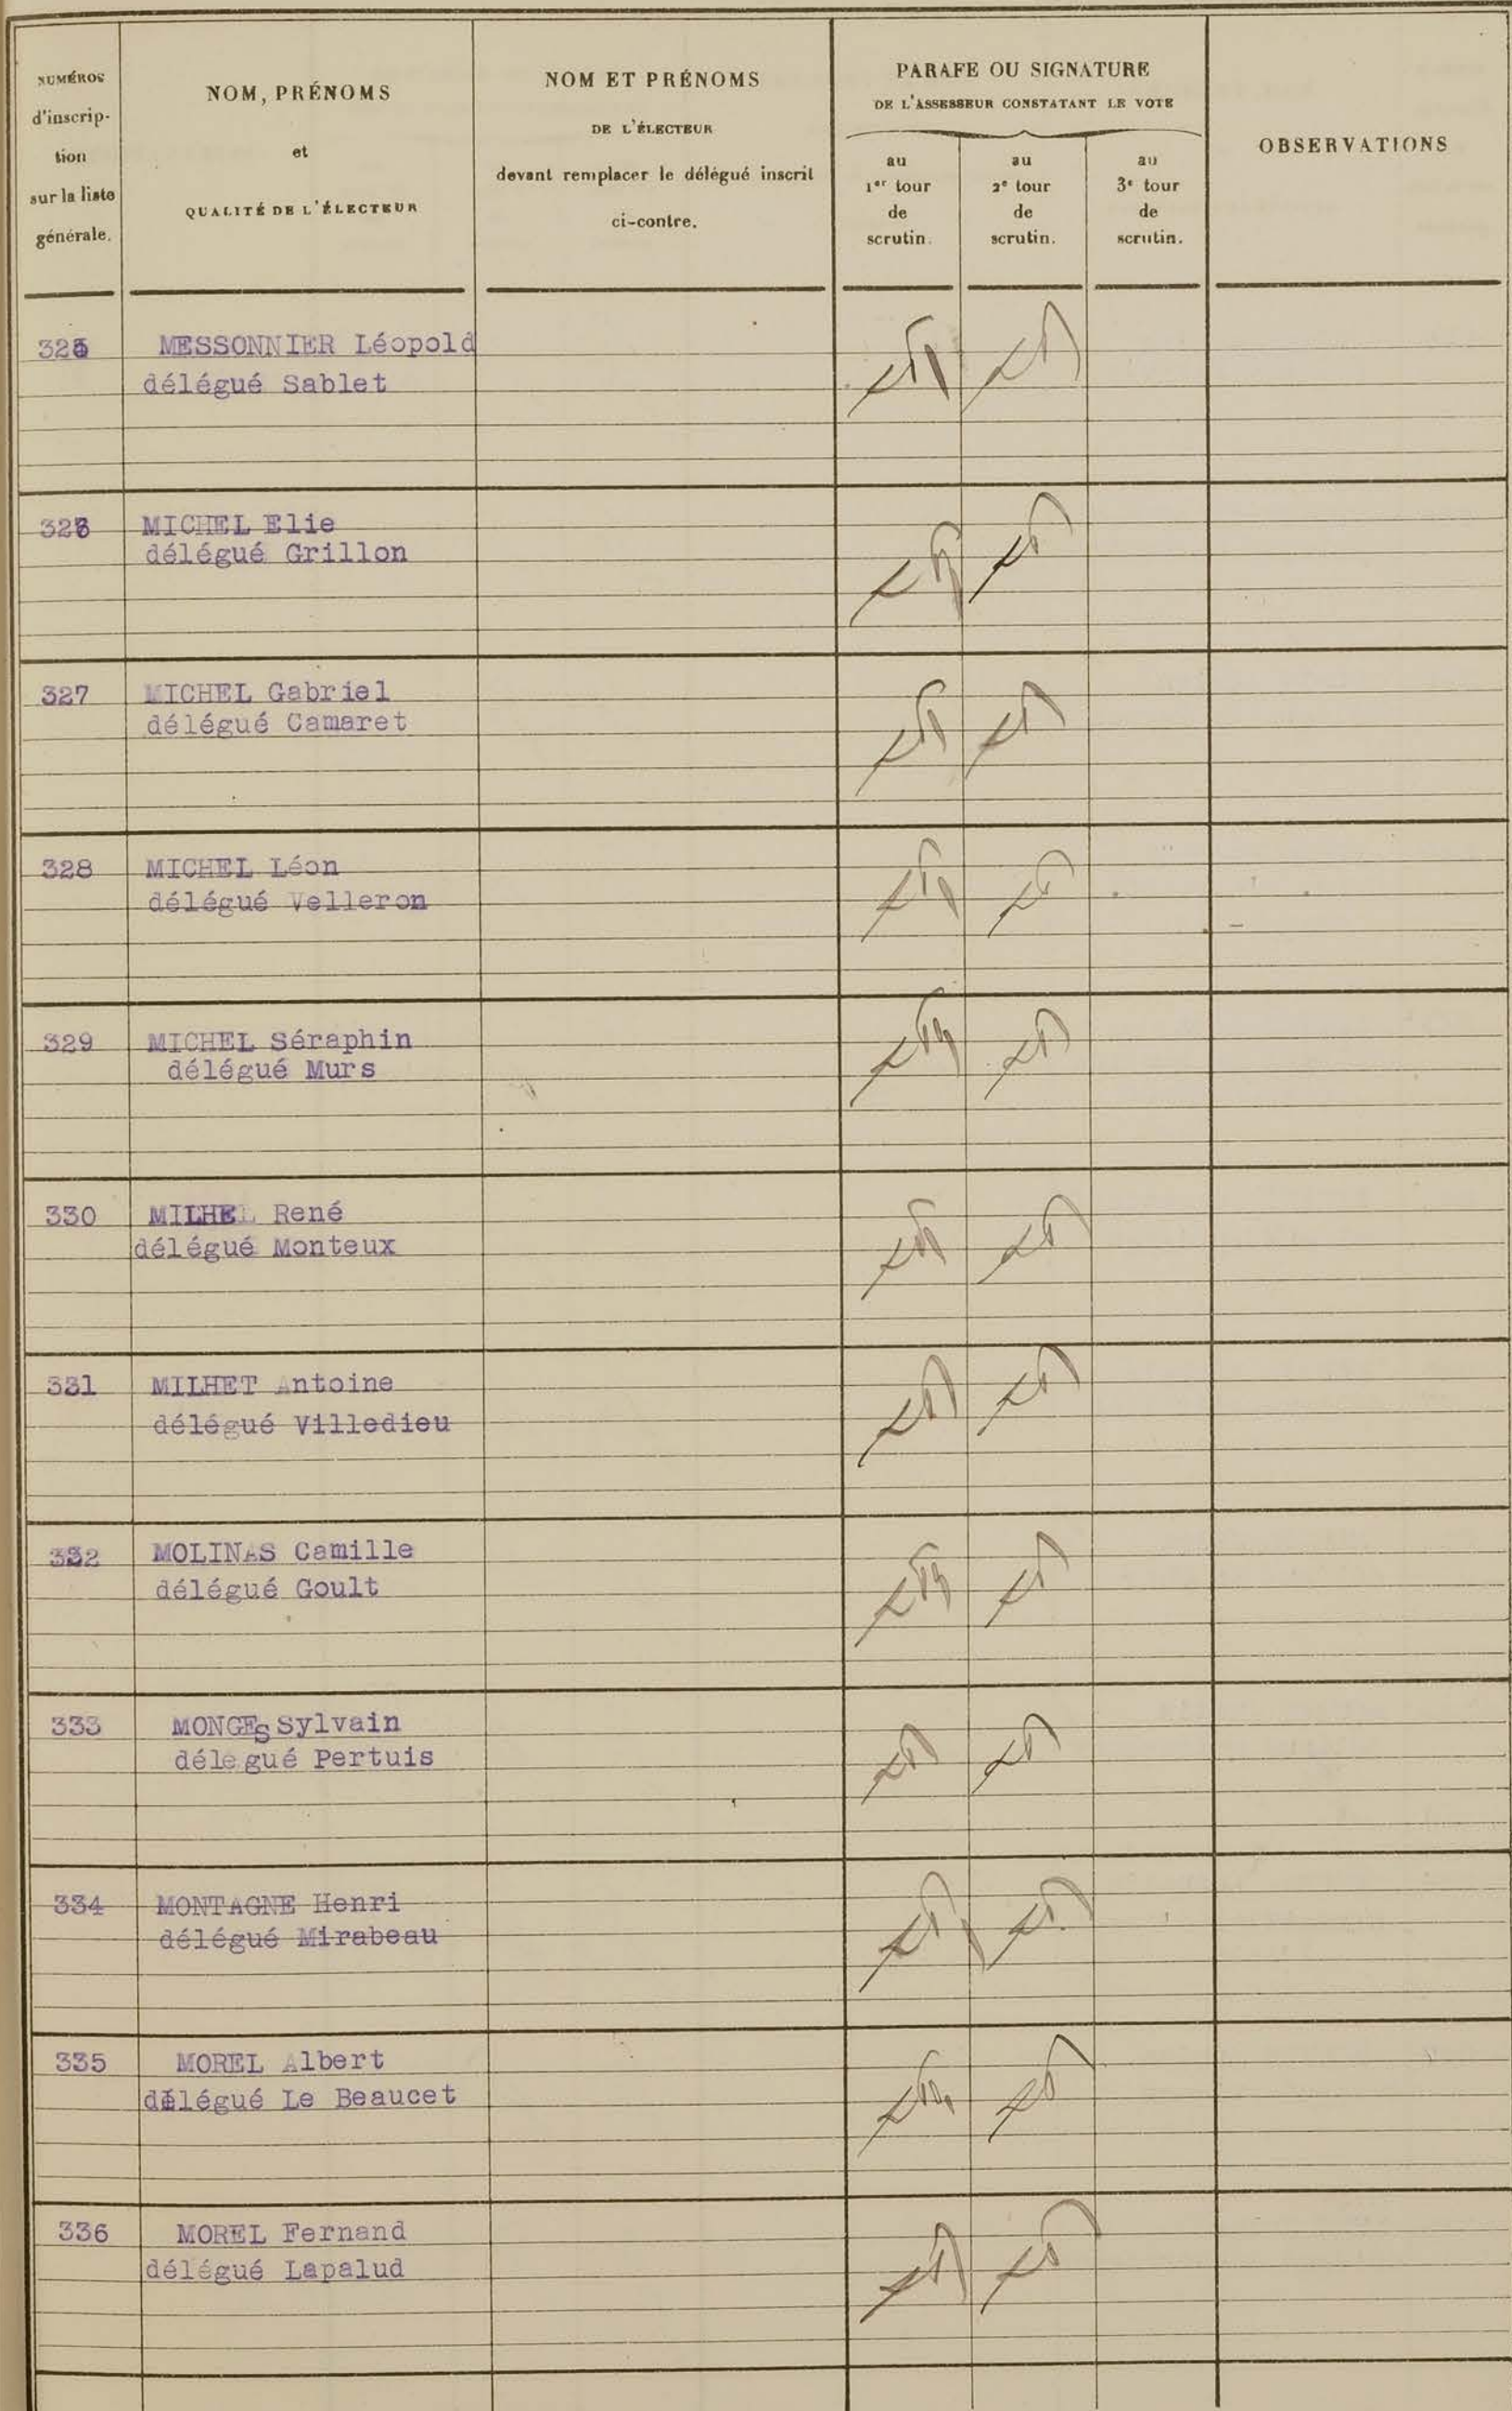 NUMÉROS
d'inscrip-
tion
sur la liste
générale.
NOM, PRÉNOMS
et
QUALITÉ DE L'ÉLECTEUR
NOM ET PRÉNOMS
DE L'ÉLECTEUR
devant remplacer le délégué inscrit
ci-contre.
PARAFE OU SIGNATURE
DE L'ASSESSEUR CONSTATANT LE VOTE
au
1er tour
de
scrutin.
au
2e tour
de
scrutin.
au
3e tour
de
scrutin.
OBSERVATIONS
325 MESSONNIER Léopold
délégué Sablet
326 MICHEL Elie
délégué Grillon
327 MICHEL Gabriel
délégué Camaret
328 MICHEL Léon
délégué Velleron
329 MICHEL Séraphin
délégué Murs
330 MILHE René
délégué Monteux
331 MILHET Antoine
délégué Villedieu
332 MOLINAS Camille
délégué Goult
333 MONGEs Sylvain
délegué Pertuis
334 MONTAGNE Henri
délégué Mirabeau
335 MOREL Albert
délégué Le Beaucet
336 MOREL Fernand
délégué Lapalud